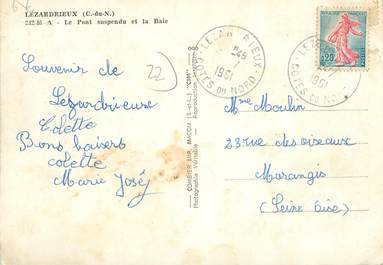 LÉZARDRIEUX (C.-du-N.)
232-85 A - Le Pont suspendu et la Baie
22
Souvenir de
Lézardrieuse
Odette
Bons baisers
colette
Marie José
COMBIER IMP. MACON (S.-et-L.) "CIM"
Photographie Véritable - Reproduction
LEZARDRIEUX
1961
COTES DU NORD
1961
COTES DU NORD
0,20
Mme Moulin
23 rue des oiseaux
Morangis
(Seine Oise)